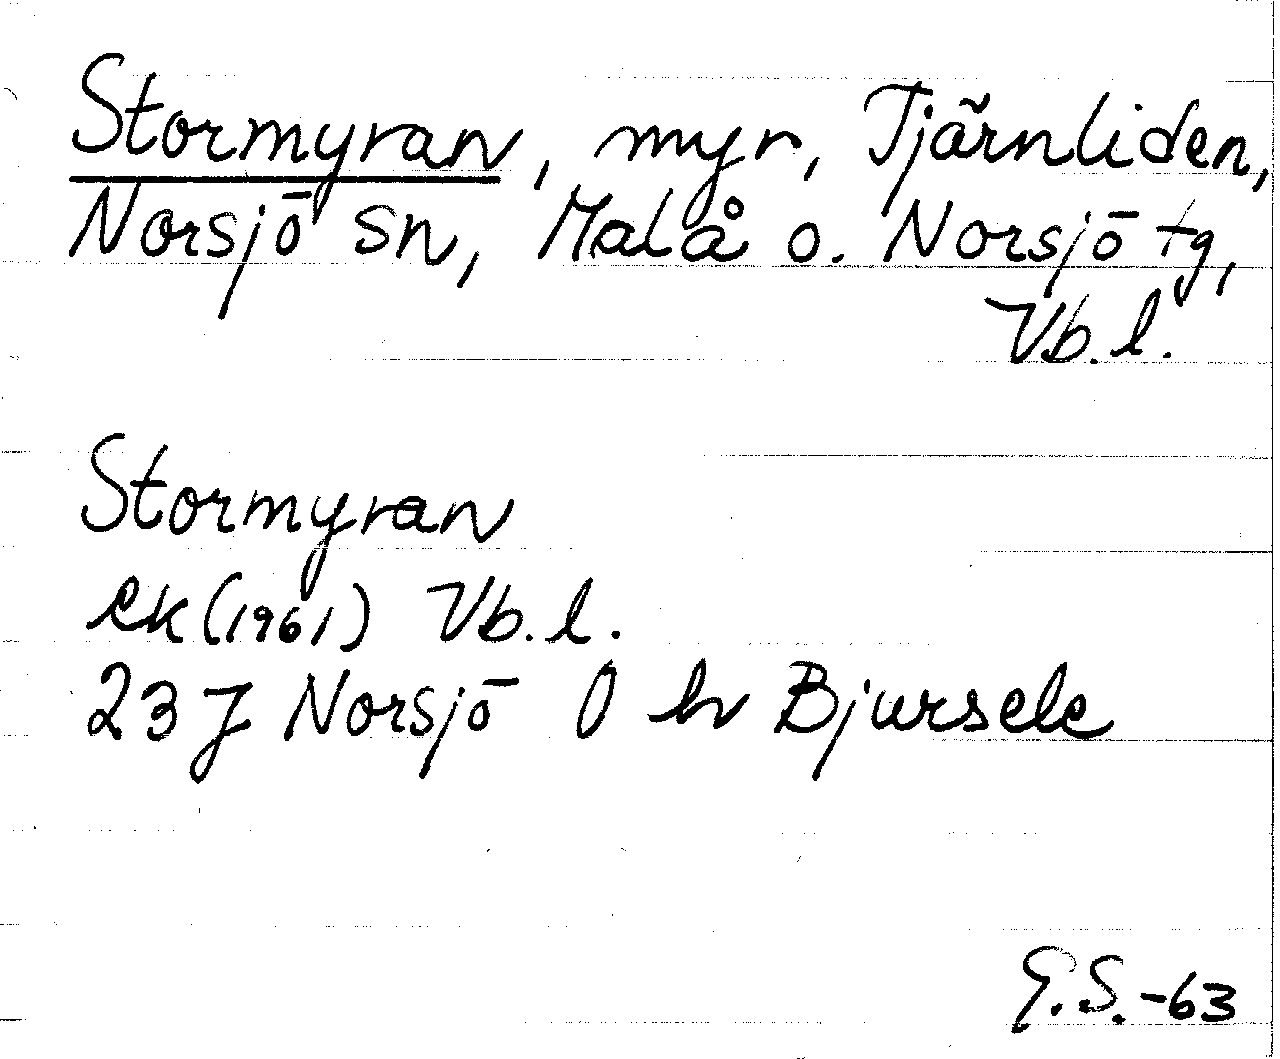 Stormyran, myr, Tjärnliden,
Norsjö sn, Malå o. Norsjö tg,
Vb. l.
Stormyran
ek (1961) Vb. l.
23 J Norsjö O hv Bjursele
G.S.-63